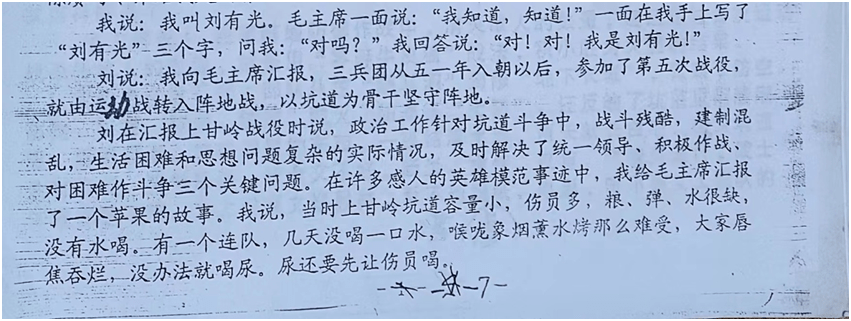 我说：我叫刘有光。毛主席一面说：“我知道，知道！”一面在我手上写了
“刘有光”三个字，问我：“对吗？”我回答说：“对！对！我是刘有光！”
刘说：我向毛主席汇报，三兵团从五一年入朝以后，参加了第五次战役，
就由运动战转入阵地战，以坑道为骨干坚守阵地。
刘在汇报上甘岭战役时说，政治工作针对坑道斗争中，战斗残酷，建制混
乱，生活困难和思想问题复杂的实际情况，及时解决了统一领导、积极作战、
对困难作斗争三个关键问题。在许多感人的英雄模范事迹中，我给毛主席汇报
了一个苹果的故事。我说，当时上甘岭坑道容量小，伤员多，粮、弹、水很缺，
没有水喝。有一个连队，几天没喝一口水，喉咙象烟薰火烤那么难受，大家唇
焦吞烂，没办法就喝尿。尿还要先让伤员喝。
-7-